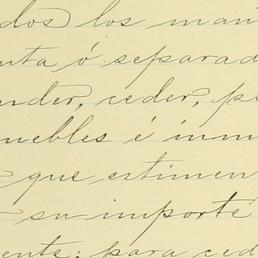 dos los
ó separad
nder, ceder, p
uebles é inm
que estimen
su importe
ente; para ced